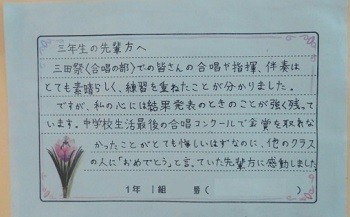 三年生の先輩方へ
三田祭(合唱の部)での皆さんの合唱や指揮、伴奏は
とても素晴らしく、練習を重ねたことが分かりました。
ですが、私の心には結果発表のときのことが強く残って
います。中学校生活最後の合唱コンクールで金賞を取れな
かったことがとても悔しいはずなのに、他のクラス
の人に「おめでとう」と言っていた先輩方に感動しました
1年 1組